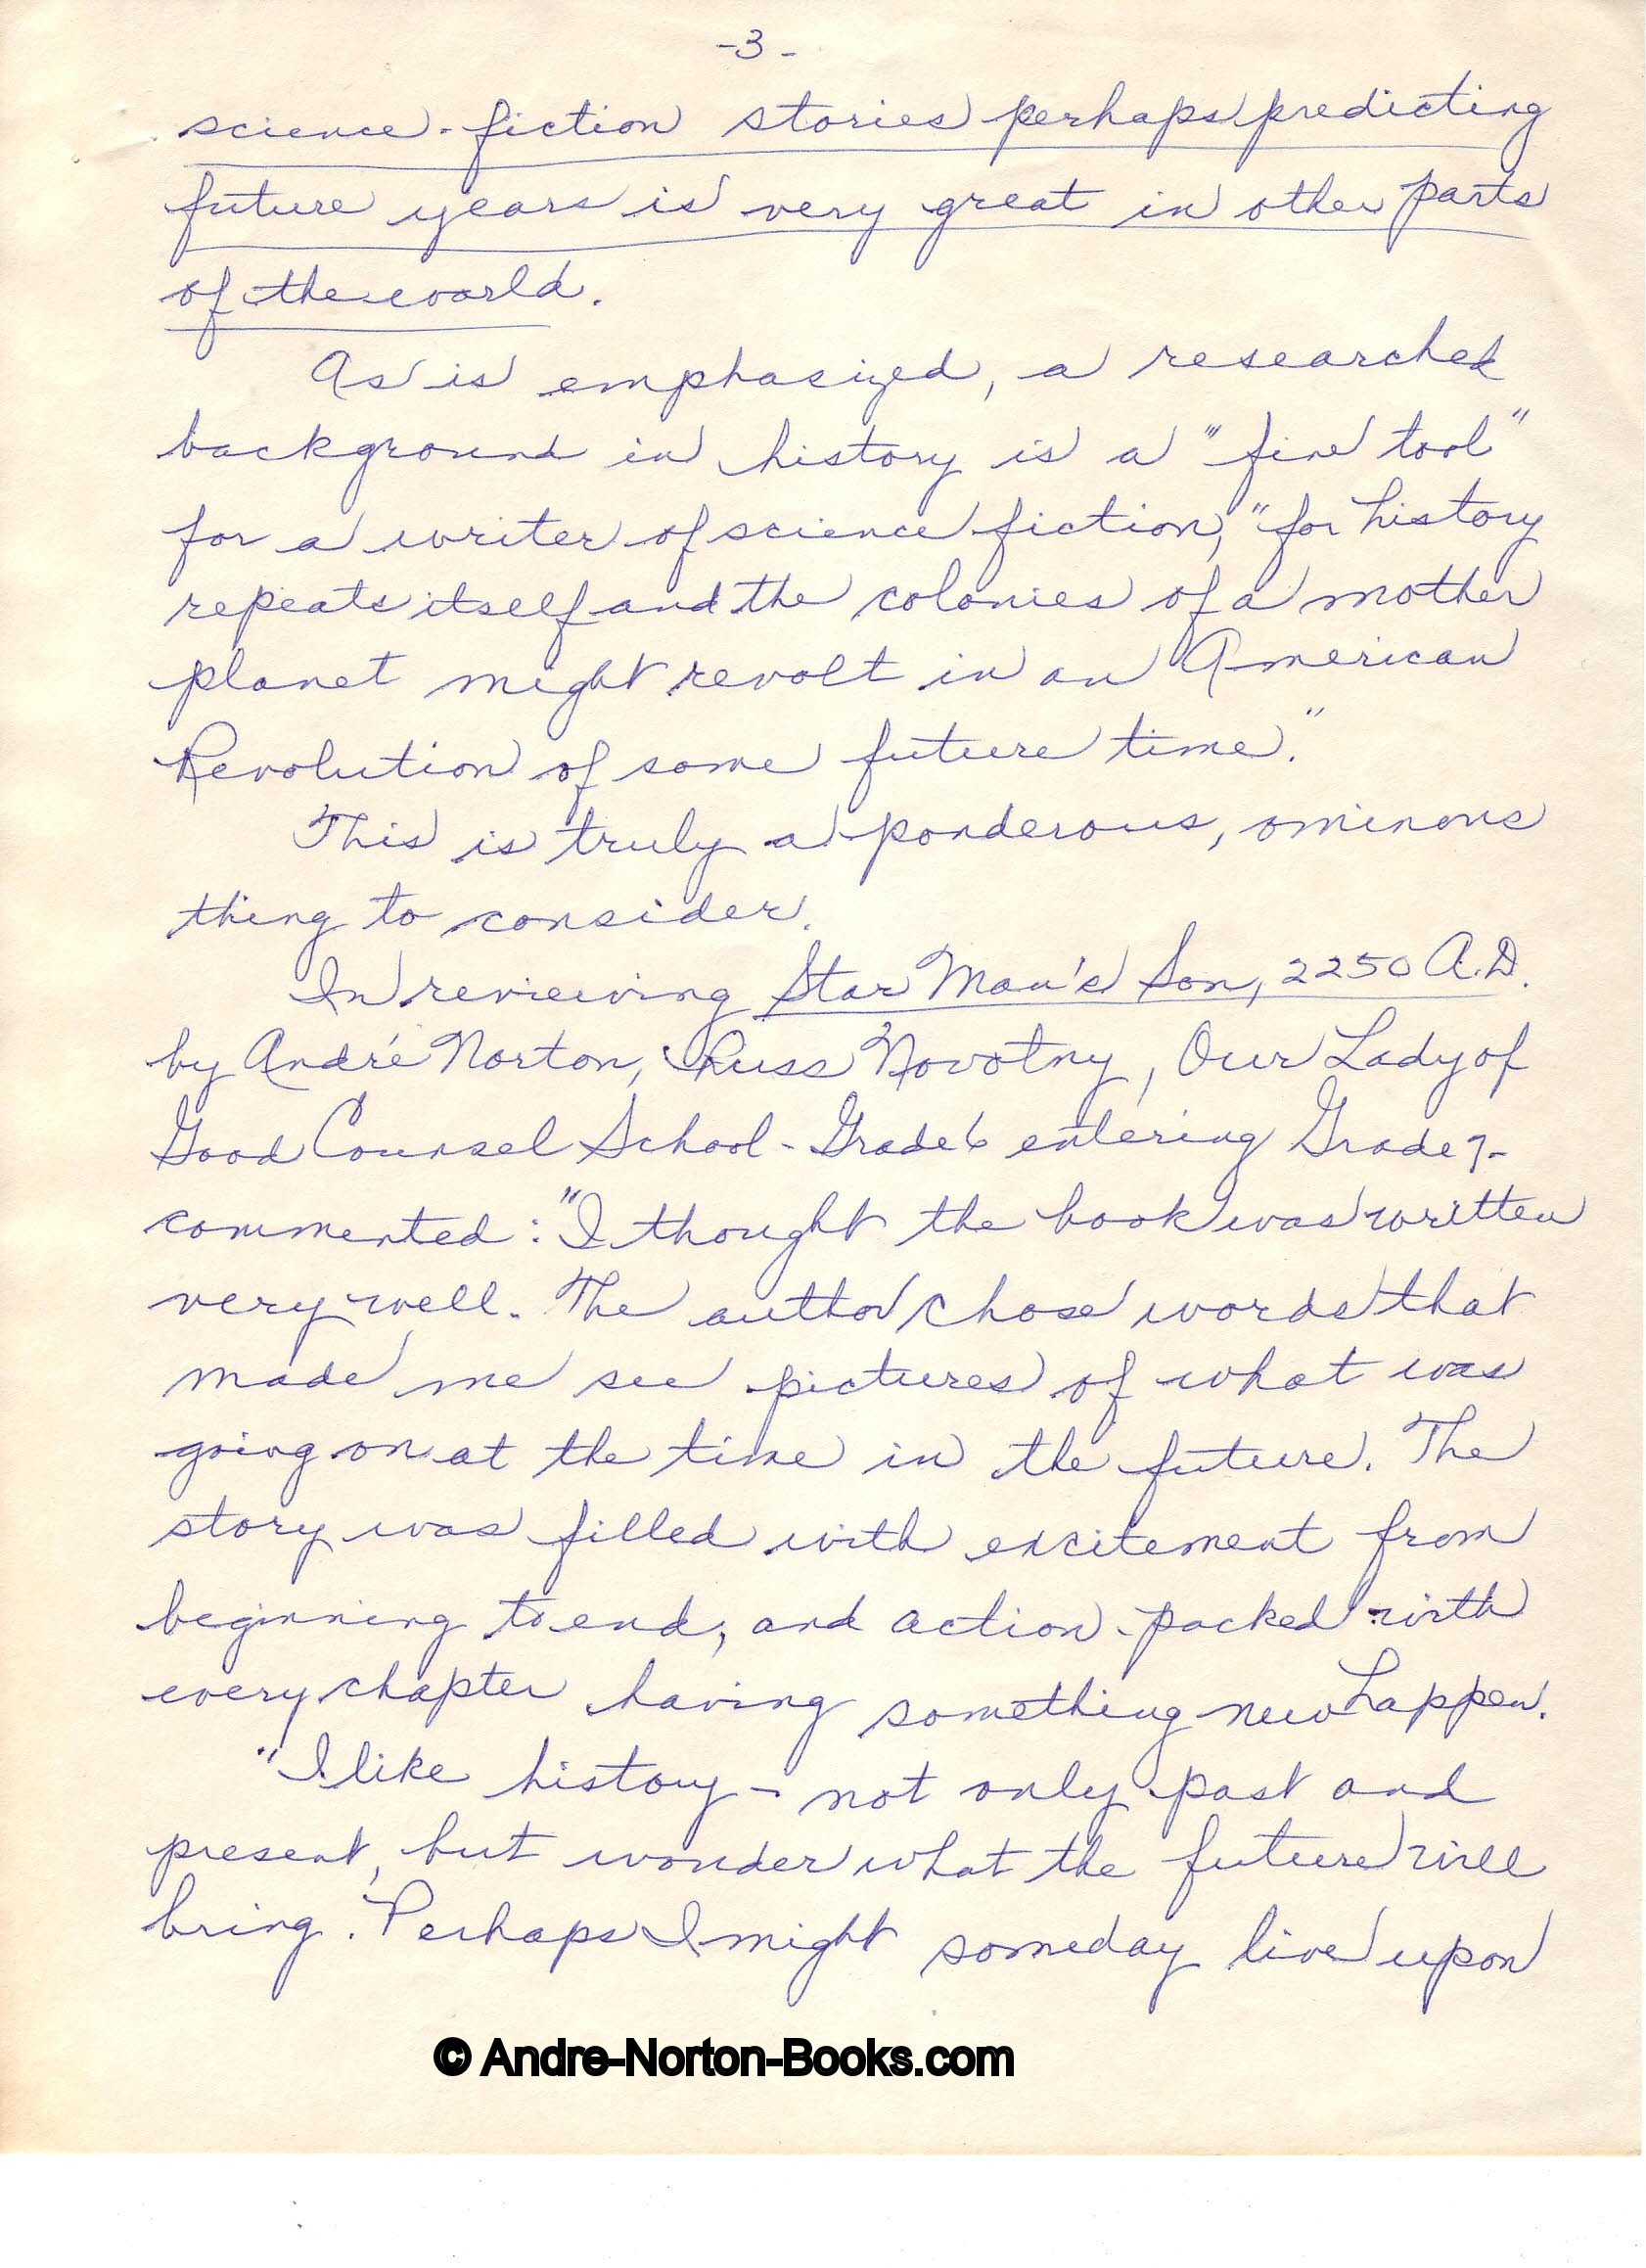 -3-
science-fiction stories perhaps predicting
future years is very great in other parts
of the world.
As is emphasized, a researched
background in history is a "fine tool"
for a writer of science fiction, "for history
repeats itself and the colonies of a mother
planet might revolt in an American
Revolution of some future time."
This is truly a ponderous, ominous
thing to consider.
In reviewing Star Man's Son, 2250 A.D.
by André Norton, Russ Novotny, Our Lady of
Good Counsel School - Grade 6 entering Grade 7 -
commented: "I thought the book was written
very well. The author chose words that
made me see pictures of what was
going on at the time in the future. The
story was filled with excitement from
beginning to end, and action-packed with
every chapter having something new happen.
"I like history - not only past and
present, but wonder what the future will
bring. Perhaps I might someday live upon
© Andre-Norton-Books.com